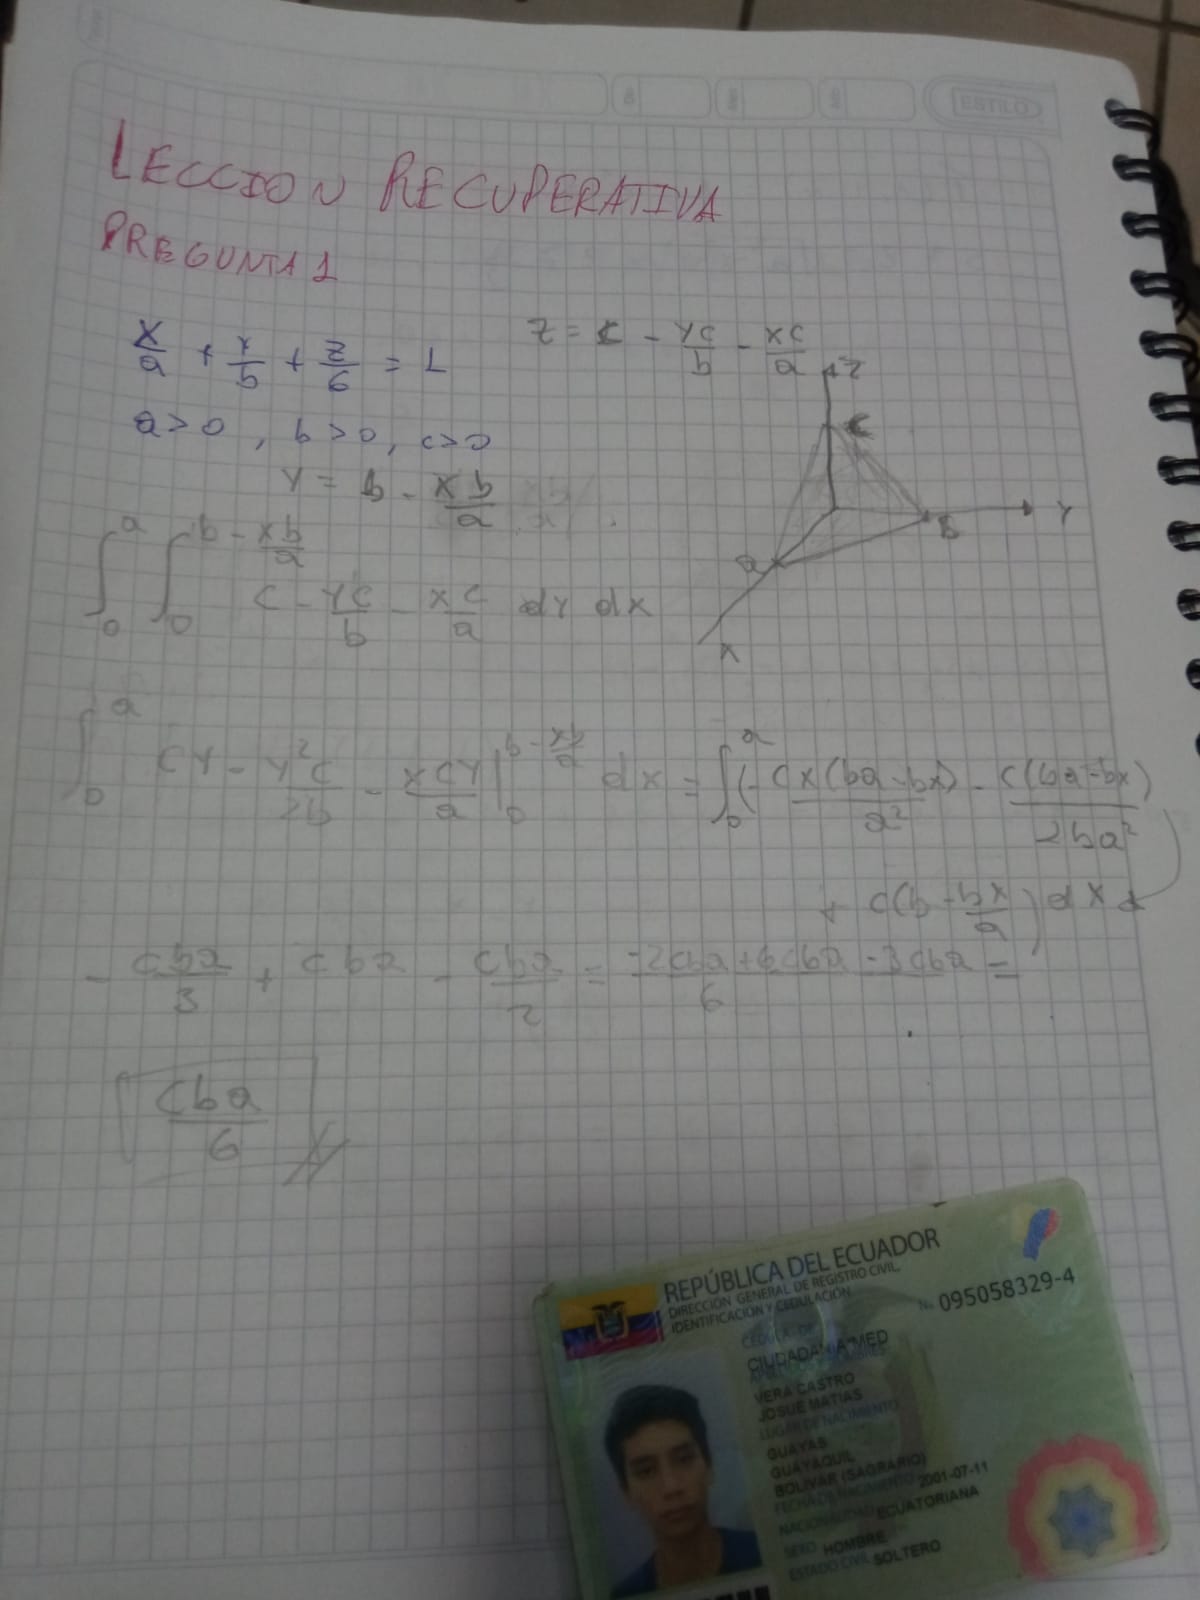 ESTILO
LECCION RECUPERATIVA
PREGUNTA 1
x/a + y/b + z/6 = 1
z = c - yc/b - xc/a
a>0, b>0, c>0
y = b - xb/a
z
c
a
B
y
x
∫₀^a ∫₀^(b - xb/a) c - yc/b - xc/a dy dx
∫₀^a cy - y²c/2b - xcy/a |₀^(b - xb/a) dx = ∫₀^a (- cx(ba - bx)/a² - c(ba - bx)/2ba²
+ c(b - bx/a)) dx
- cba/3 + cba - cba/2 = -2cba + 6cba - 3cba/6 =
cba/6
REPÚBLICA DEL ECUADOR
DIRECCIÓN GENERAL DE REGISTRO CIVIL,
IDENTIFICACIÓN Y CEDULACIÓN
N. 095058329-4
CÉDULA DE
VERA CASTRO
JOSUE MATIAS
LUGAR DE NACIMIENTO
GUAYAS
GUAYAQUIL
BOLIVAR (SAGRARIO)
FECHA DE NACIMIENTO 2001-07-11
NACIONALIDAD ECUATORIANA
SEXO HOMBRE
ESTADO CIVIL SOLTERO